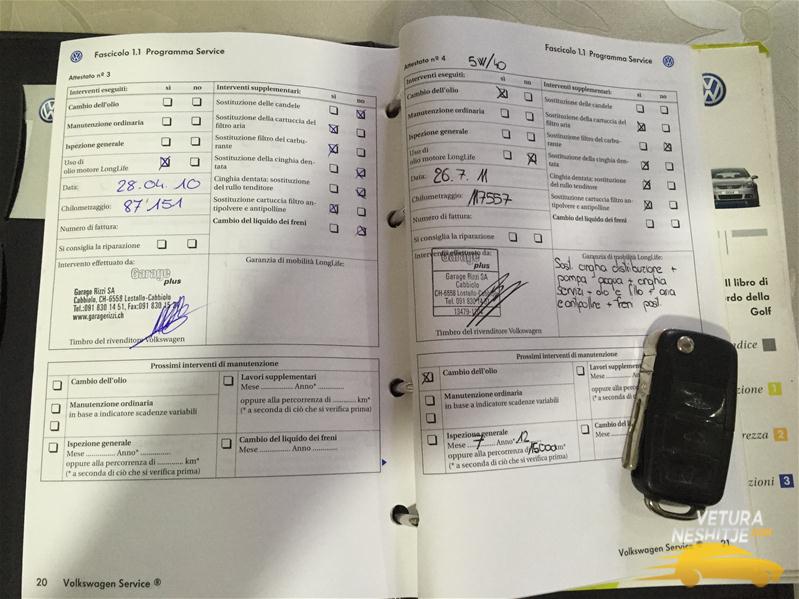 Fascicolo 1.1 Programma Service
Attestato nº 3
Interventi eseguiti: sì no
Cambio dell'olio
Manutenzione ordinaria
Ispezione generale
Uso di
olio motore LongLife
Data: 28.04.10
Chilometraggio: 87'151
Numero di fattura:
Si consiglia la riparazione
Interventi supplementari: sì no
Sostituzione delle candele
Sostituzione della cartuccia del
filtro aria
Sostituzione filtro del carbu-
rante
Sostituzione della cinghia den-
tata
Cinghia dentata: sostituzione
del rullo tenditore
Sostituzione cartuccia filtro an-
tipolvere e antipolline
Cambio del liquido dei freni
Intervento effettuato da:
Garage
plus
Garage Rizzi SA
Cabbiolo, CH-6558 Lostallo-Cabbiolo
Tel.:091 830 14 51, Fax:091 830
www.garagerizzi.ch
Timbro del rivenditore Volkswagen
Garanzia di mobilità LongLife:
Prossimi interventi di manutenzione
Cambio dell'olio
Manutenzione ordinaria
in base a indicatore scadenze variabili
Ispezione generale
Mese .............. Anno* ..............
oppure alla percorrenza di ............ km*
(* a seconda di ciò che si verifica prima)
Lavori supplementari
Mese .............. Anno* ..............
oppure alla percorrenza di ............ km*
(* a seconda di ciò che si verifica prima)
Cambio del liquido dei freni
Mese .............. Anno ..............
20 Volkswagen Service ®
Fascicolo 1.1 Programma Service
Attestato nº 4
5W/40
Interventi eseguiti: sì no
Cambio dell'olio
Manutenzione ordinaria
Ispezione generale
Uso di
olio motore LongLife
Data: 26.7.11
Chilometraggio: 117557
Numero di fattura:
Si consiglia la riparazione
Interventi supplementari: sì no
Sostituzione delle candele
Sostituzione della cartuccia del
filtro aria
Sostituzione filtro del carbu-
rante
Sostituzione della cinghia den-
tata
Cinghia dentata: sostituzione
del rullo tenditore
Sostituzione cartuccia filtro an-
tipolvere e antipolline
Cambio del liquido dei freni
Intervento effettuato da:
Garage
plus
Garage Rizzi SA
Cabbiolo
CH-6558 Lostallo-Cabbiolo
Tel. 091 830 14 51
Timbro del rivenditore Volkswagen
Garanzia di mobilità LongLife:
Sost. cinghia distribuzione +
pompa acqua + cinghia
servizi + olio e filtro + aria
e antipolline + freni post.
Prossimi interventi di manutenzione
Cambio dell'olio
Manutenzione ordinaria
in base a indicatore scadenze variabili
Ispezione generale
Mese 7 Anno* 12
oppure alla percorrenza di 15000 km*
(* a seconda di ciò che si verifica prima)
Lavori supplementari
Mese
oppure alla
(* a seconda
Cambio del
Mese
Volkswagen Service
21
Il libro di
bordo della
Golf
1
2
3
VETURA
NESHITJE